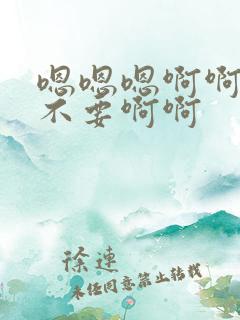 嗯嗯嗯啊啊
不要啊啊
徐速
未经同意禁止转载